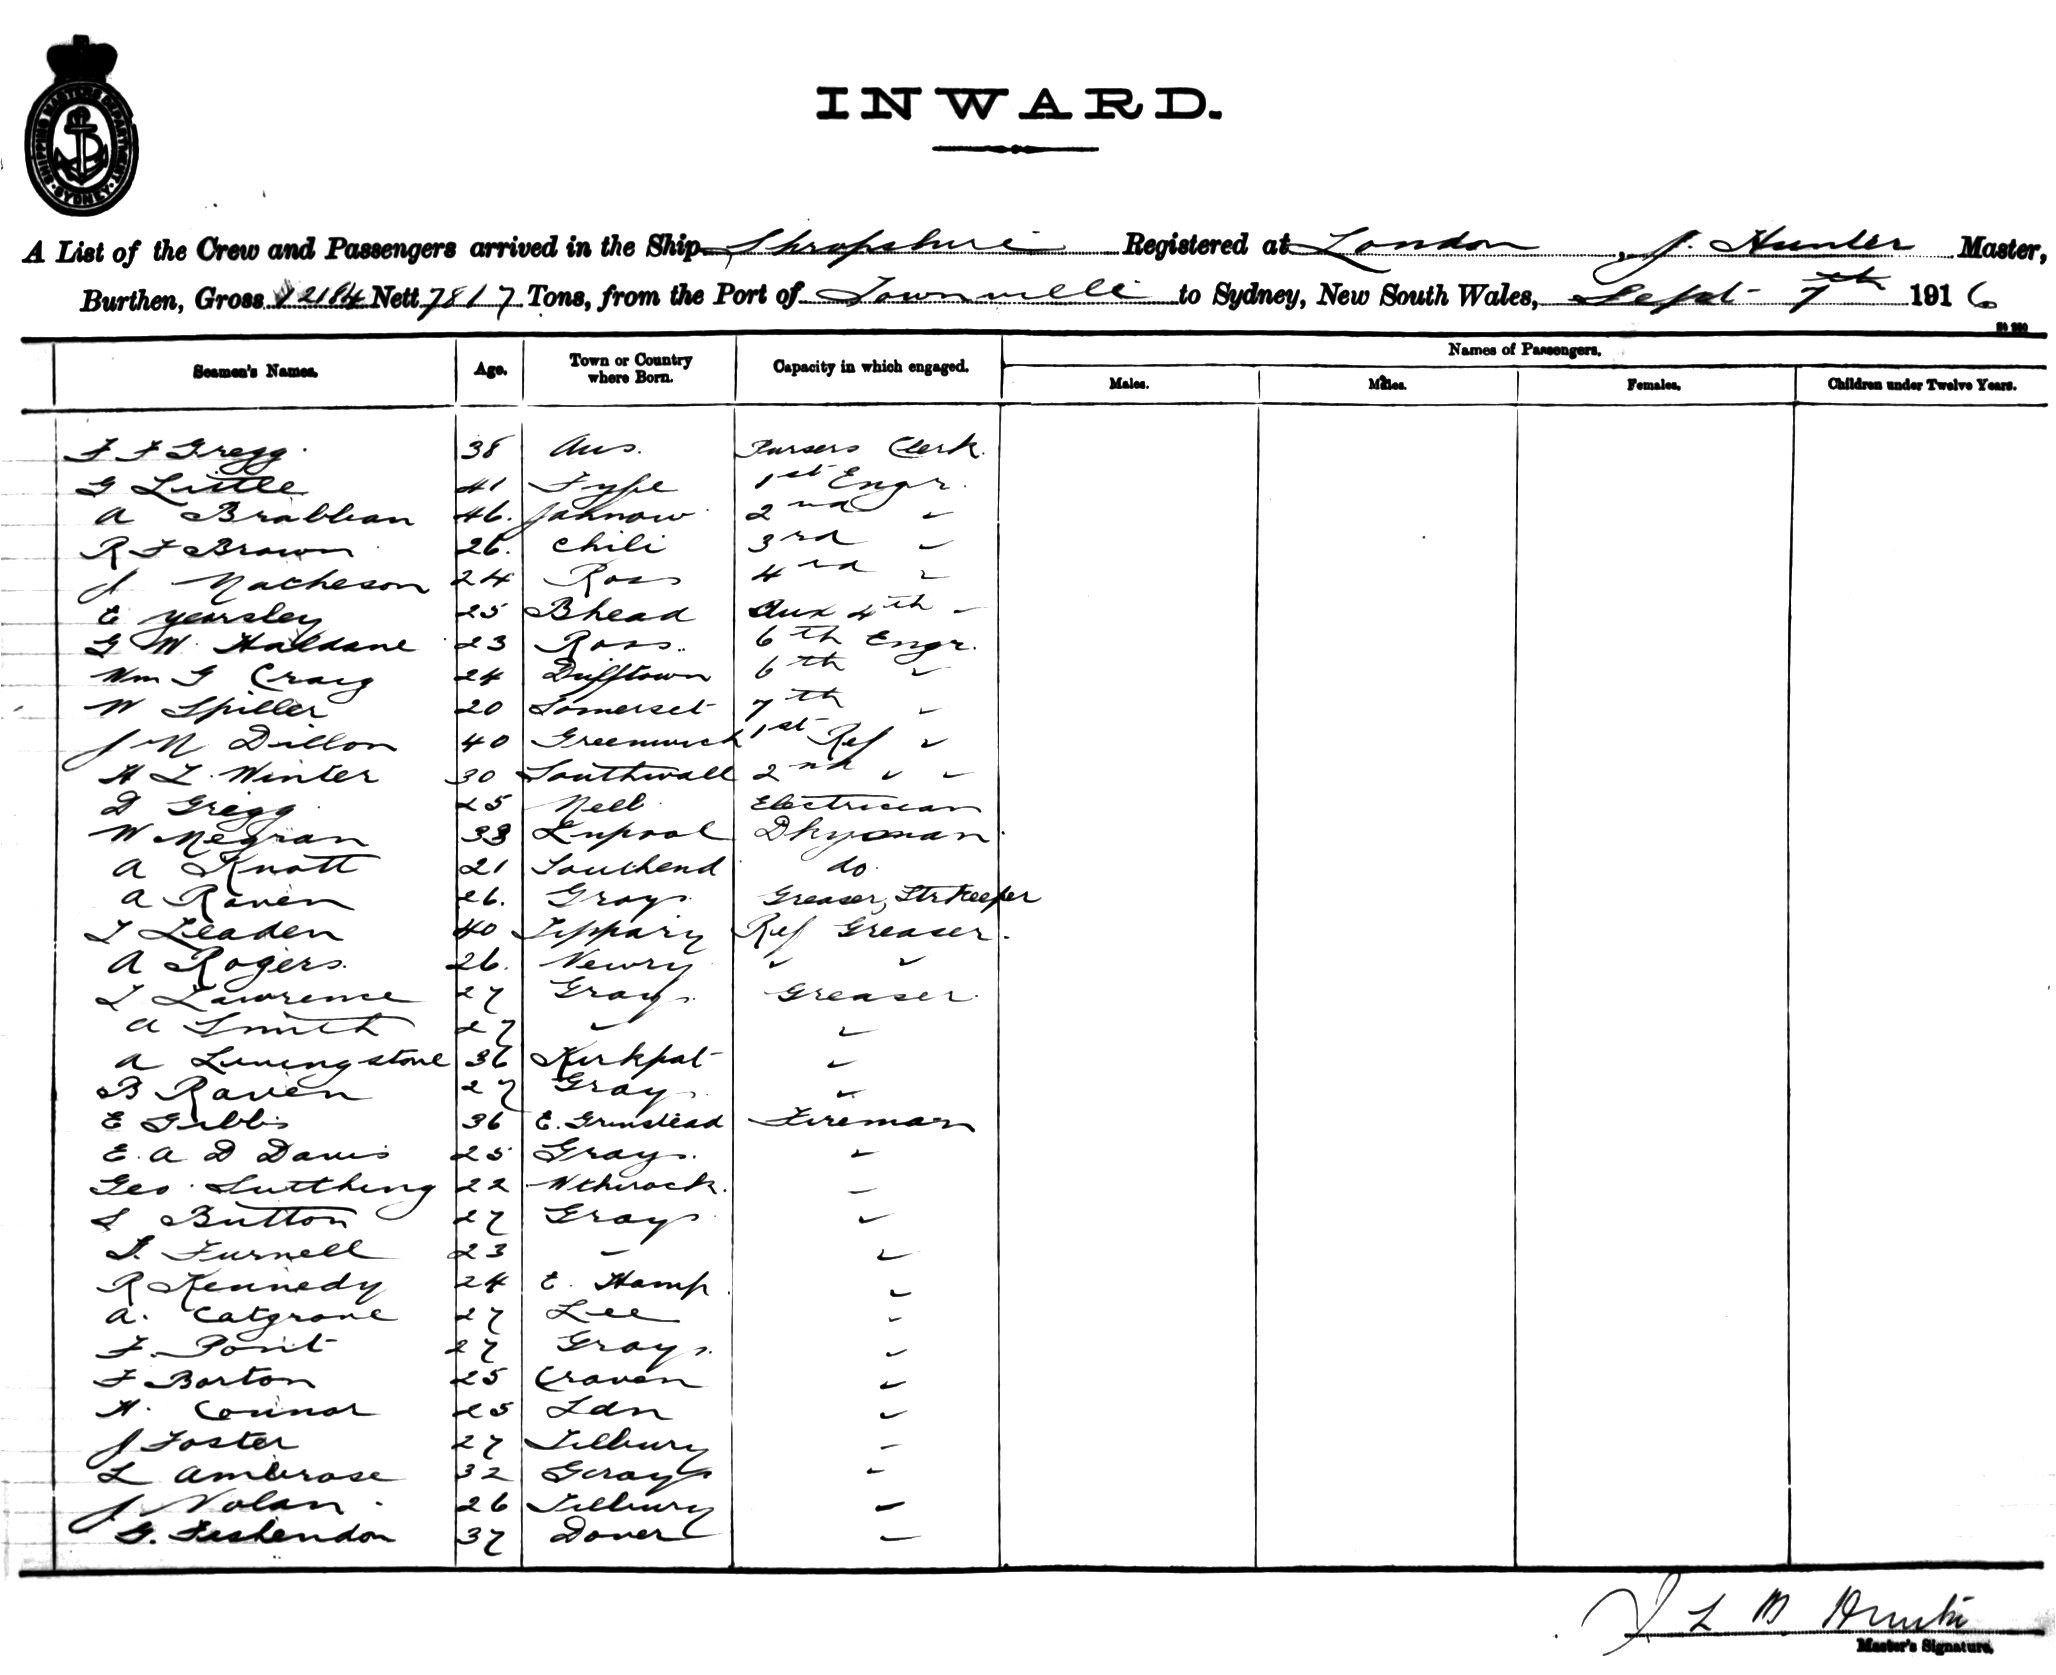 INWARD.
SHIPPING MASTERS DEPARTMENT. SYDNEY.
A List of the Crew and Passengers arrived in the Ship Shropshire Registered at London, J. Hunter Master,
Burthen, Gross 12184 Nett 7817 Tons, from the Port of Townville to Sydney, New South Wales, Sept 7th 1916
Seamen's Names. Age. Town or Country where Born. Capacity in which engaged. Names of Passengers.
Males. Males. Females. Children under Twelve Years.
F F Gregg 38 Aus. Pursers Clerk.
G Little 41 Fyfe 1st Engr.
A Brabban 46. Jahnow 2nd "
R F Brown 26. Chili 3rd "
J Matheson 24 Ross 4rd "
E Yearsley 25 Bhead Aux 4th "
G W. Haldane 23 Ross. 6th Engr.
Wm G Craig 24 Dufftown 6th "
W Spiller 20 Somerset 7th "
J M Dillon 40 Greenwich 1st Ref "
H L Winter 30 Southwall 2nd " "
D Gregg 25 Nell Electrician
W Megran 33 Lvpool Dkyman.
A Knott 21 Southend do.
A Raven 26. Grays Greaser, StrKeeper
T Leaden 40 Tippary Ref Greaser.
A Rogers 26. Newry " "
T Lawrence 27 Grays. Greaser.
A Smith 27 " "
A Livingstone 36 Kirkpat "
B Raven 27 Grays. "
E Gibbs 36 E. Grinstead Fireman
E. A D Davis 25 Grays. "
Geo. Sutthing 22 Wthurock. "
S Button 27 Grays "
T. Furnell 23 " "
R Kennedy 24 E. Hamp. "
A. Catgrove 27 Lee "
F. Pont 27 Grays. "
F Barton 25 Craven "
H. Connor 25 Ldn "
J Foster 27 Tilbury "
L Ambrose 32 Grays "
J Nolan 26 Tilbury "
G. Feshendon 37 Dover "
J L B Hunter
Master's Signature.